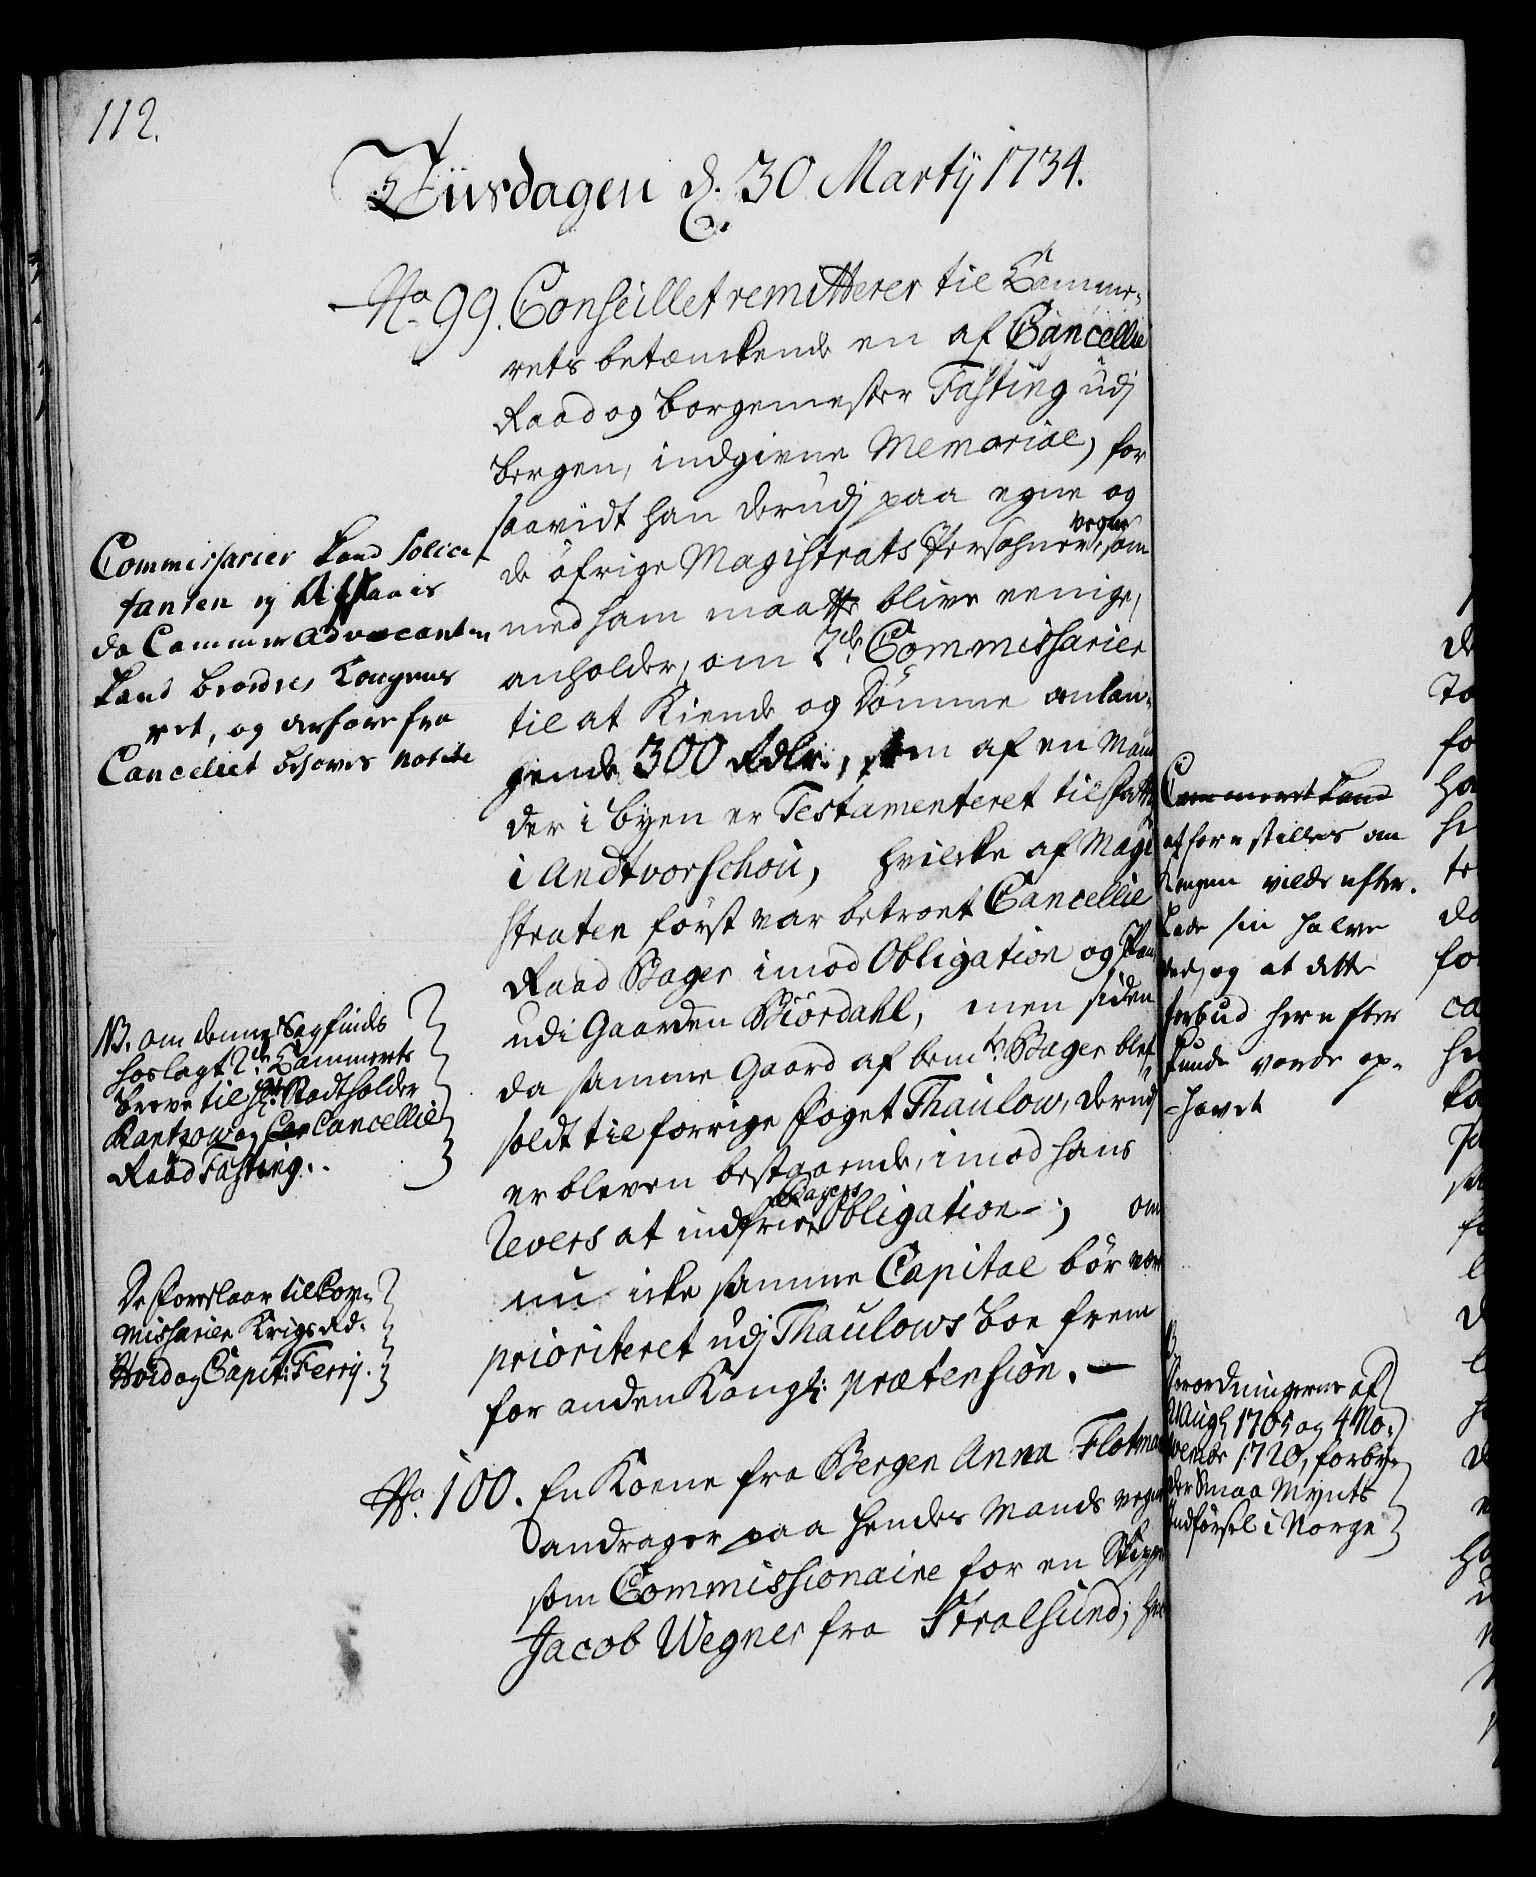 112.
Tiisdagen d. 30 Martÿ 1734.
No 99. Conseillet remitterer til Cammer-
rets betænckende en af Cancellie
Raad og borgemester Fasting udj
bergen, indgivne Memorial, for
saavidt han derudj paa egne og
de öfrige Magistrats Persohners vegne, som
med ham maatte blive eenige,
anholder, om 2de Commissarier
til at Kiende og dömme anlan-
gende 300 Rdlr., som af en Mand
der i byen er Testamenteret til
i Andtvorschou, hvilcke af Magi
straten först var betroet Cancellie
Raad Bager imod Obligation og Pan
udi Gaarden Biördahl, men siden
da samme Gaard af bemte Bager blef
soldt til forrige foget Thaulow, derudj
er bleven bestaaende, imod hans
Revers at indfrie Bagers Obligation; om
nu icke samme Capital bör være
prioriteret udj Thaulows boe frem
for anden Kongl: prætension. —
No. 100. En Kone fra Bergen Anna Flotman
andrager paa hendes Mands vegne
som Commissionaire for en Skipper
Jacob Wegner fra Stralsund,
Commissarier kand Solici
tanten ej
da Cammer Advocanten
kand beordres Kongens
ret, og derfore fra
Cancelliet behøves notice
NB. om denne Sag findes
hoslagt 2de Cammerets
breve til Hr. Stadtholder
Rantzow og Cancellie
Raad Fasting.
De foreslaar til Com-
missarier Krigs Rd.
Woid og Capit: Ferrÿ.
Cammeret kand
at forestilles om
Kongen vilde efter-
lade sin halve
deel, og at dette
forbud herefter
kunde vorde op-
-hævet
Forordningerne af
Aug: 1705 og 4 No-
vembr 1720, forby-
der Smaa Mynts
Indførsel i Norge